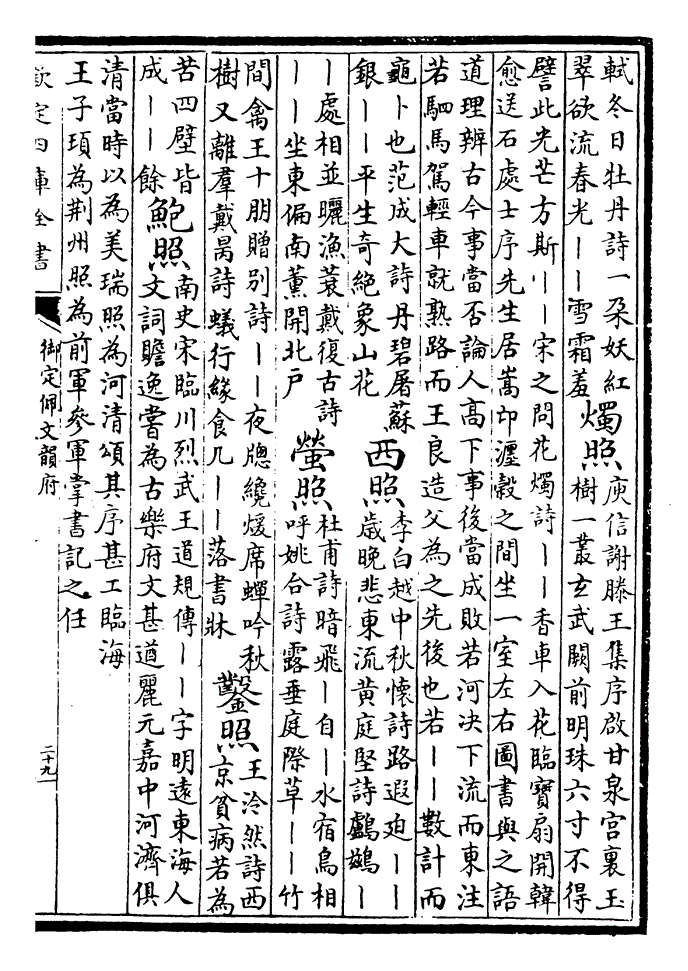 軾冬日牡丹詩一朶妖紅
翠欲流春光丨丨雪霜羞
燭照
庾信謝滕王集序啟甘泉宫裏玉
樹一叢玄武闕前明珠六寸不得
譬此光芒方斯丨丨宋之問花燭詩丨丨香車入花臨寶扇開韓
愈送石處士序先生居嵩邙瀍穀之間坐一室左右圖書與之語
道理辨古今事當否論人高下事後當成敗若河决下流而東注
若駟馬駕輕車就熟路而王良造父為之先後也若丨丨數計而
龜卜也范成大詩丹碧屠蘇
銀丨丨平生奇絶象山花
西照
李白越中秋懷詩路遐迫丨丨
歲晚悲東流黄庭堅詩鸕鷀丨
丨處相並曬漁蓑戴復古詩
丨丨坐東偏南薰開北戶
螢照
杜甫詩暗飛丨自丨水宿鳥相
呼姚合詩露垂庭際草丨丨竹
間禽王十朋贈别詩丨丨夜牕纔煖席蟬吟秋
樹又離羣戴昺詩蟻行緣食几丨丨落書牀
鑿照
王泠然詩西
京貧病若為
苦四壁皆
成丨丨餘
鮑照
南史宋臨川烈武王道規傳丨丨字明遠東海人
文詞贍逸嘗為古樂府文甚遒麗元嘉中河濟俱
清當時以為美瑞照為河清頌其序甚工臨海
王子頊為荆州照為前軍參軍掌書記之任
欽定四庫全書
御定佩文韻府
二十九